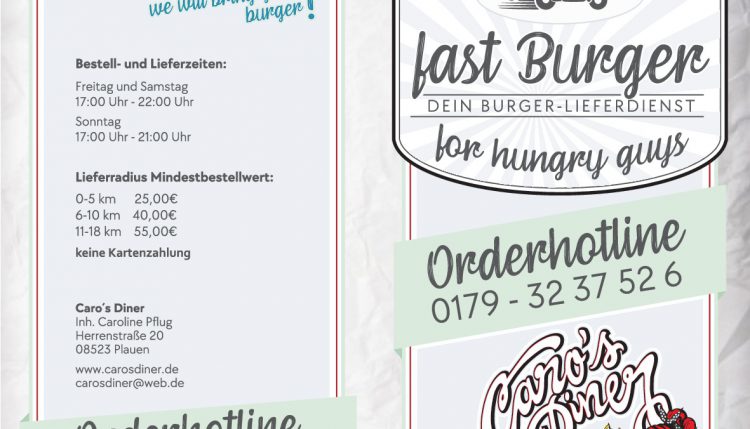 we will bring
burger!
Bestell- und Lieferzeiten:
Freitag und Samstag
17:00 Uhr - 22:00 Uhr
Sonntag
17:00 Uhr - 21:00 Uhr
Lieferradius Mindestbestellwert:
0-5 km 25,00€
6-10 km 40,00€
11-18 km 55,00€
keine Kartenzahlung
Caro´s Diner
Inh. Caroline Pflug
Herrenstraße 20
08523 Plauen
www.carosdiner.de
carosdiner@web.de
Orderhotline
fast Burger
DEIN BURGER-LIEFERDIENST
for hungry guys
Orderhotline
0179 - 32 37 52 6
Caro's
Diner